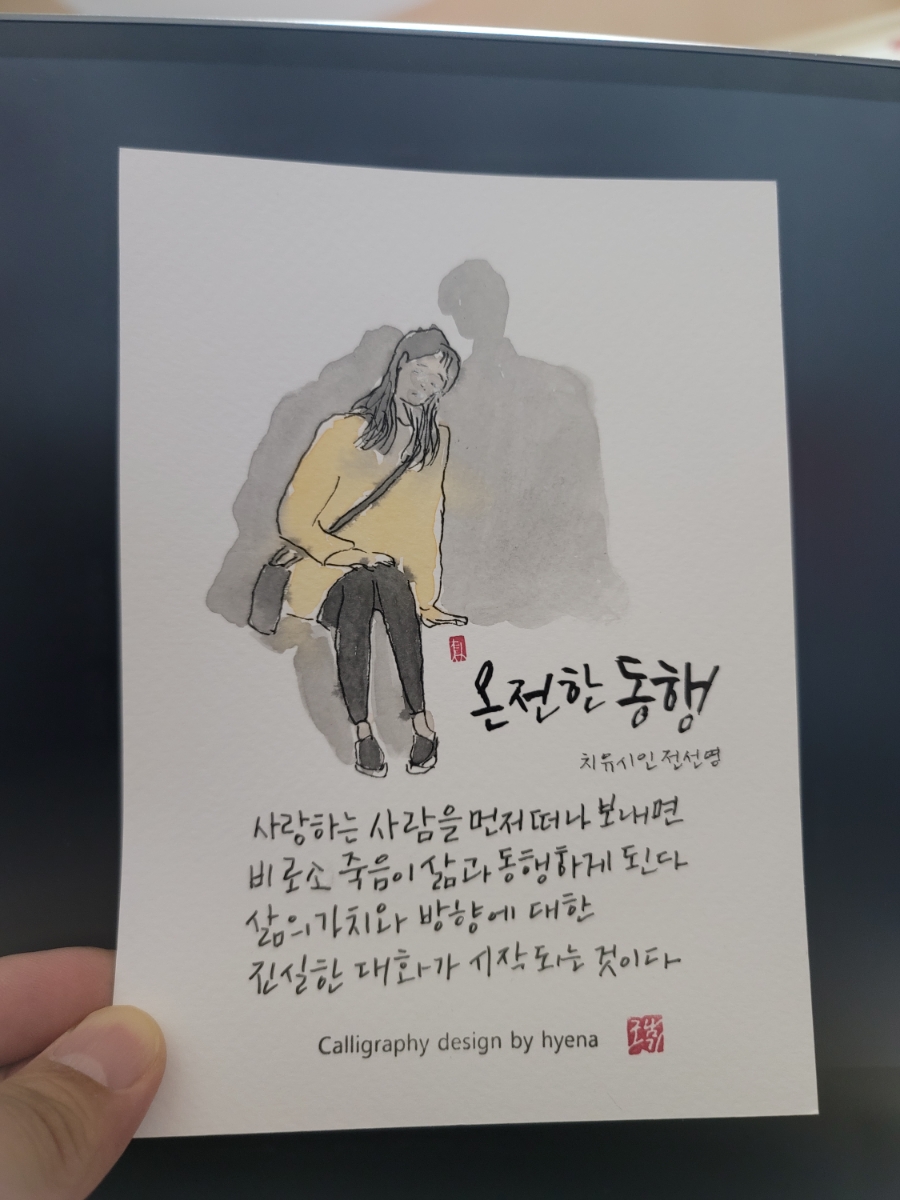 온전한 동행
치유시인 전선영
사랑하는 사람을 먼저 떠나 보내면
비로소 죽음이 삶과 동행하게 된다
삶의 가치와 방향에 대한
진실한 대화가 시작되는 것이다
Calligraphy design by hyena